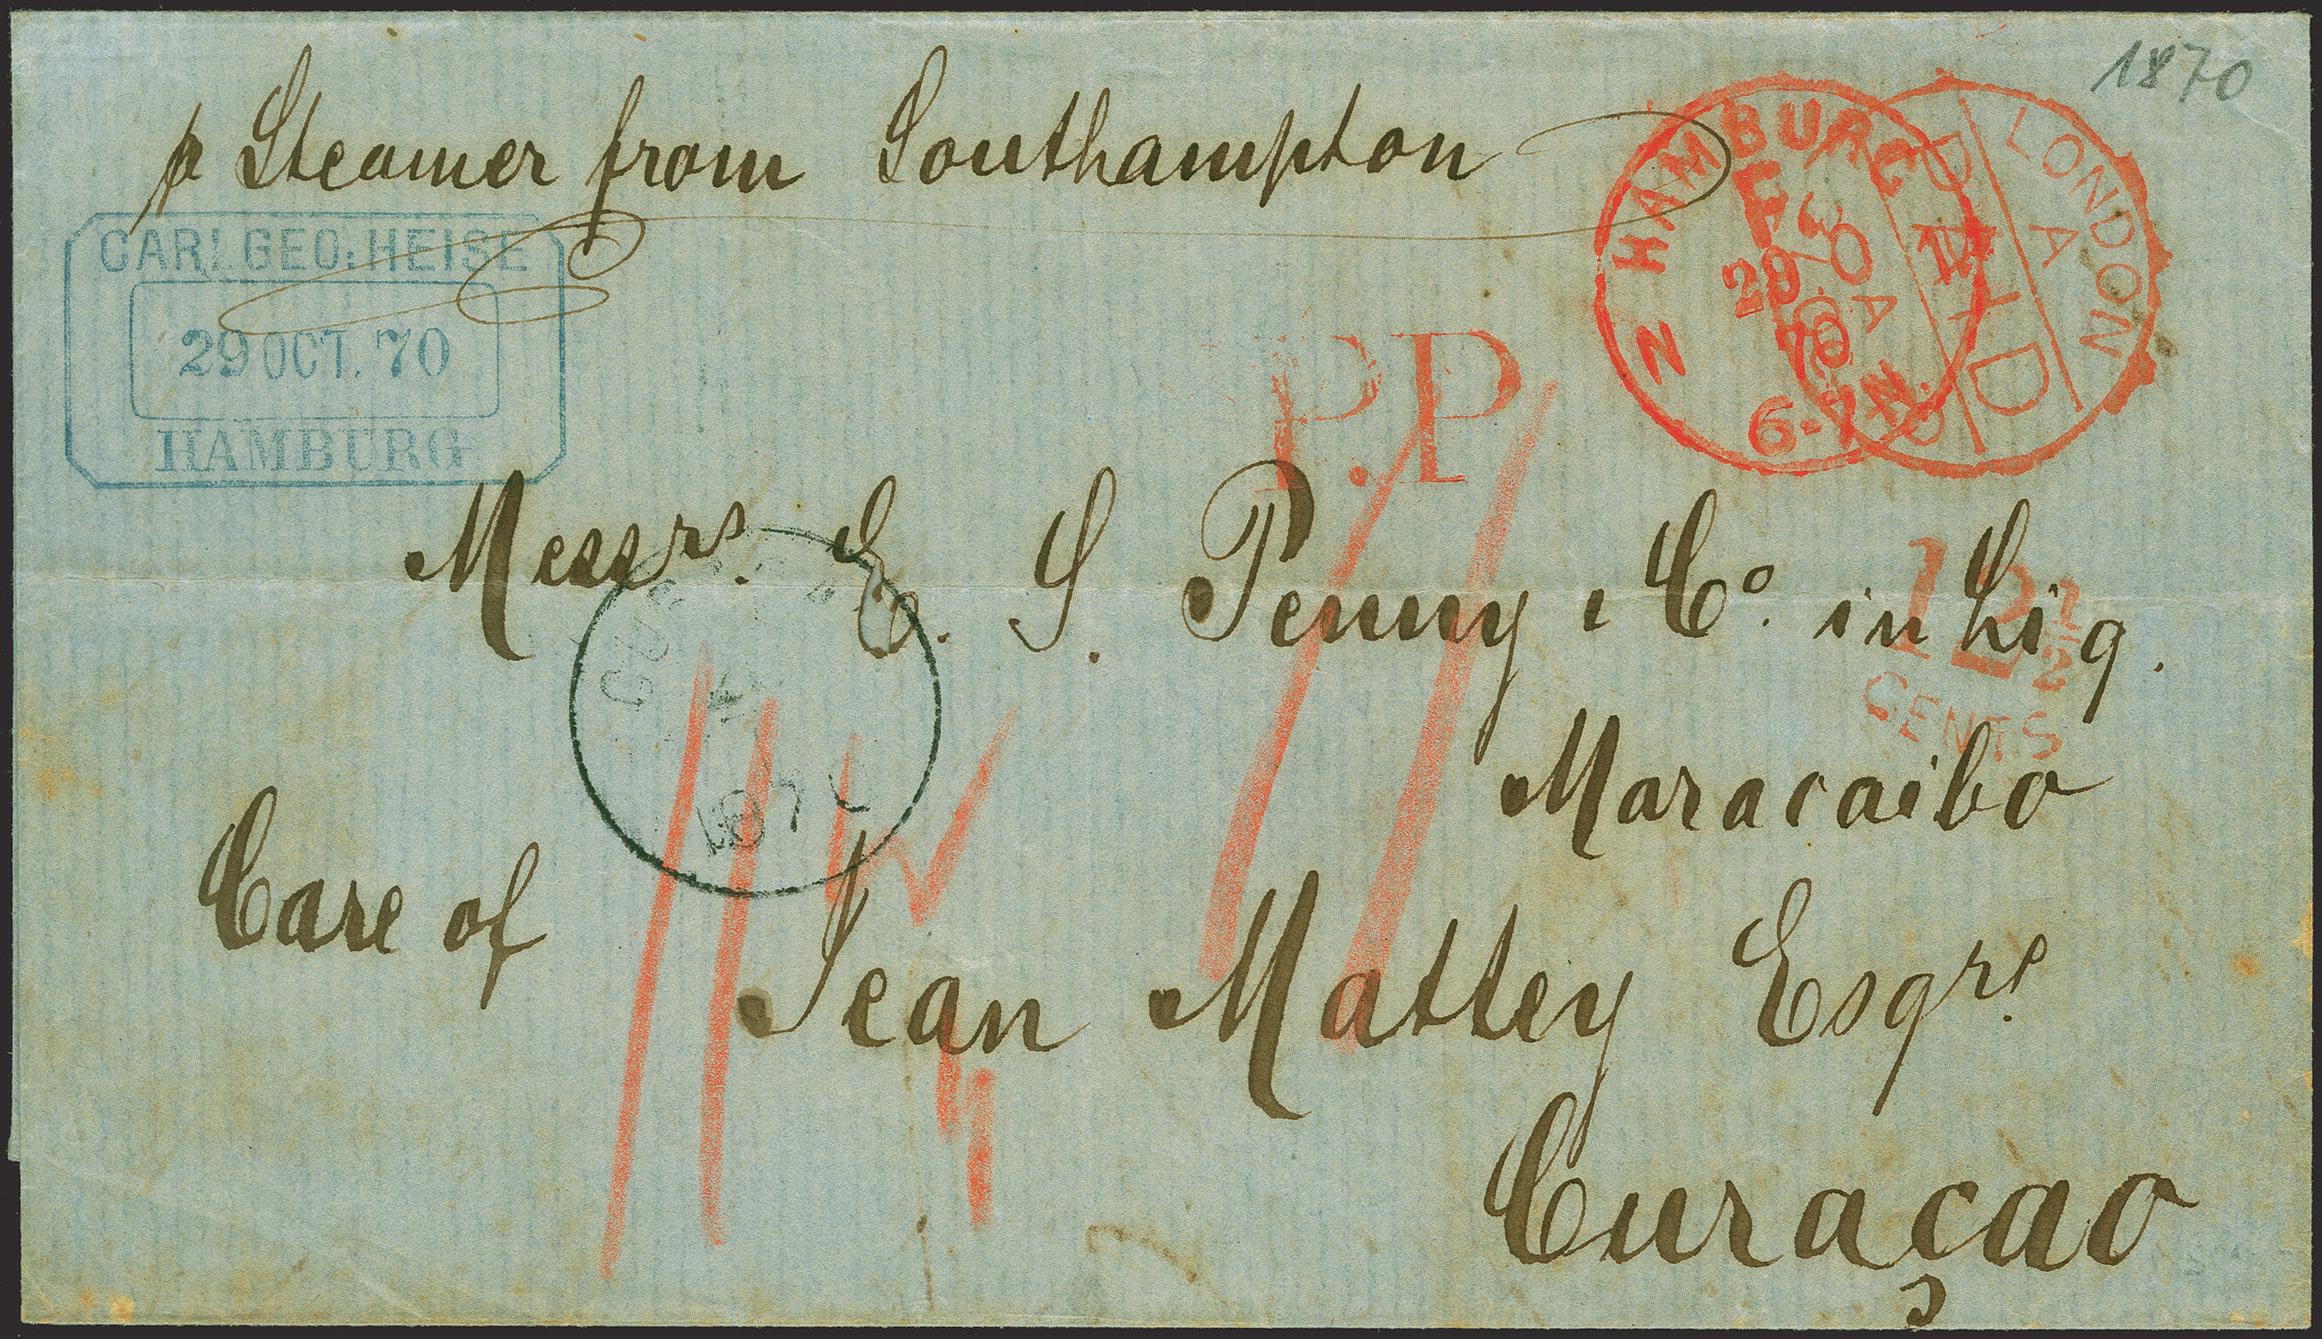 1870
p Steamer from Southampton
CARL GEO: HEISE
29 OCT. 70
HAMBURG
HAMBURG
F
29
70
6-7 N.
N
LONDON
A
PAID
P.P.
Messrs. E. S. Penny & Co. in Liq.
12 1/2
CENTS
Maracaibo
187
Care of Jean Mattey Esqre.
Curaçao